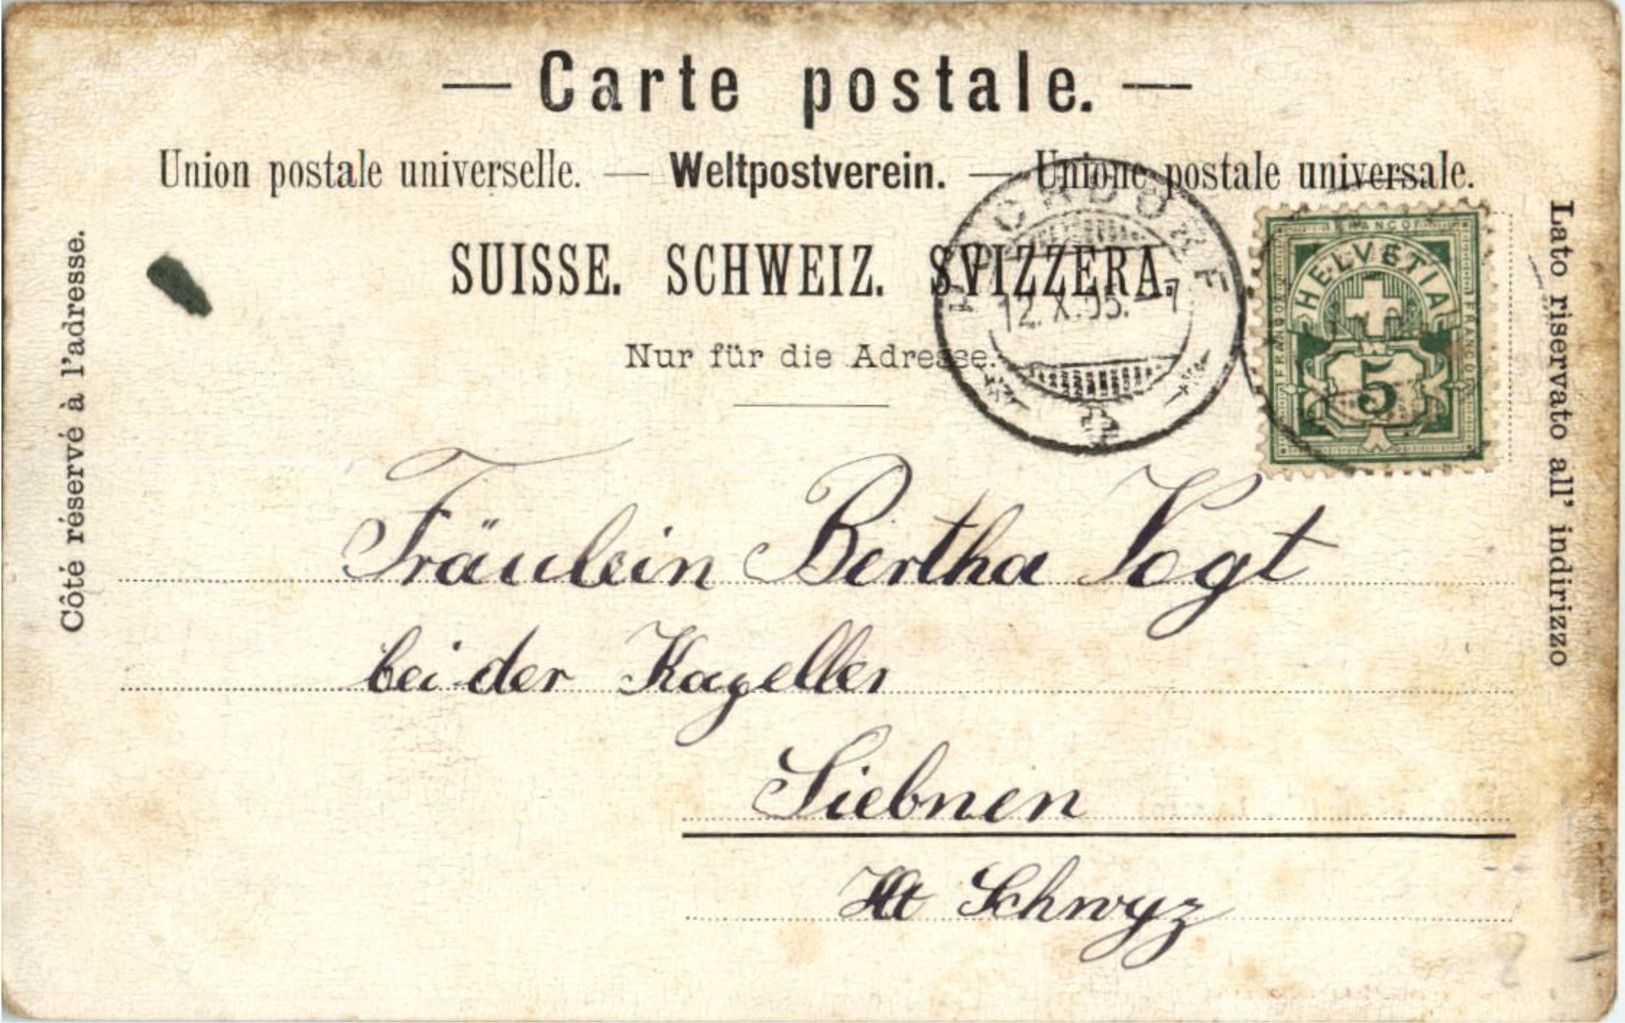 — Carte postale. —
Union postale universelle. — Weltpostverein. — Unione postale universale.
SUISSE. SCHWEIZ. SVIZZERA.
Nur für die Adresse.
Côté réservé à l'adresse.
Lato riservato all' indirizzo
12. X. 05. - 7
FRANCO
HELVETIA
FRANCO
FRANCO
5
Fräulein Bertha Vogt
bei der Kapeller
Siebnen
Kt Schwyz